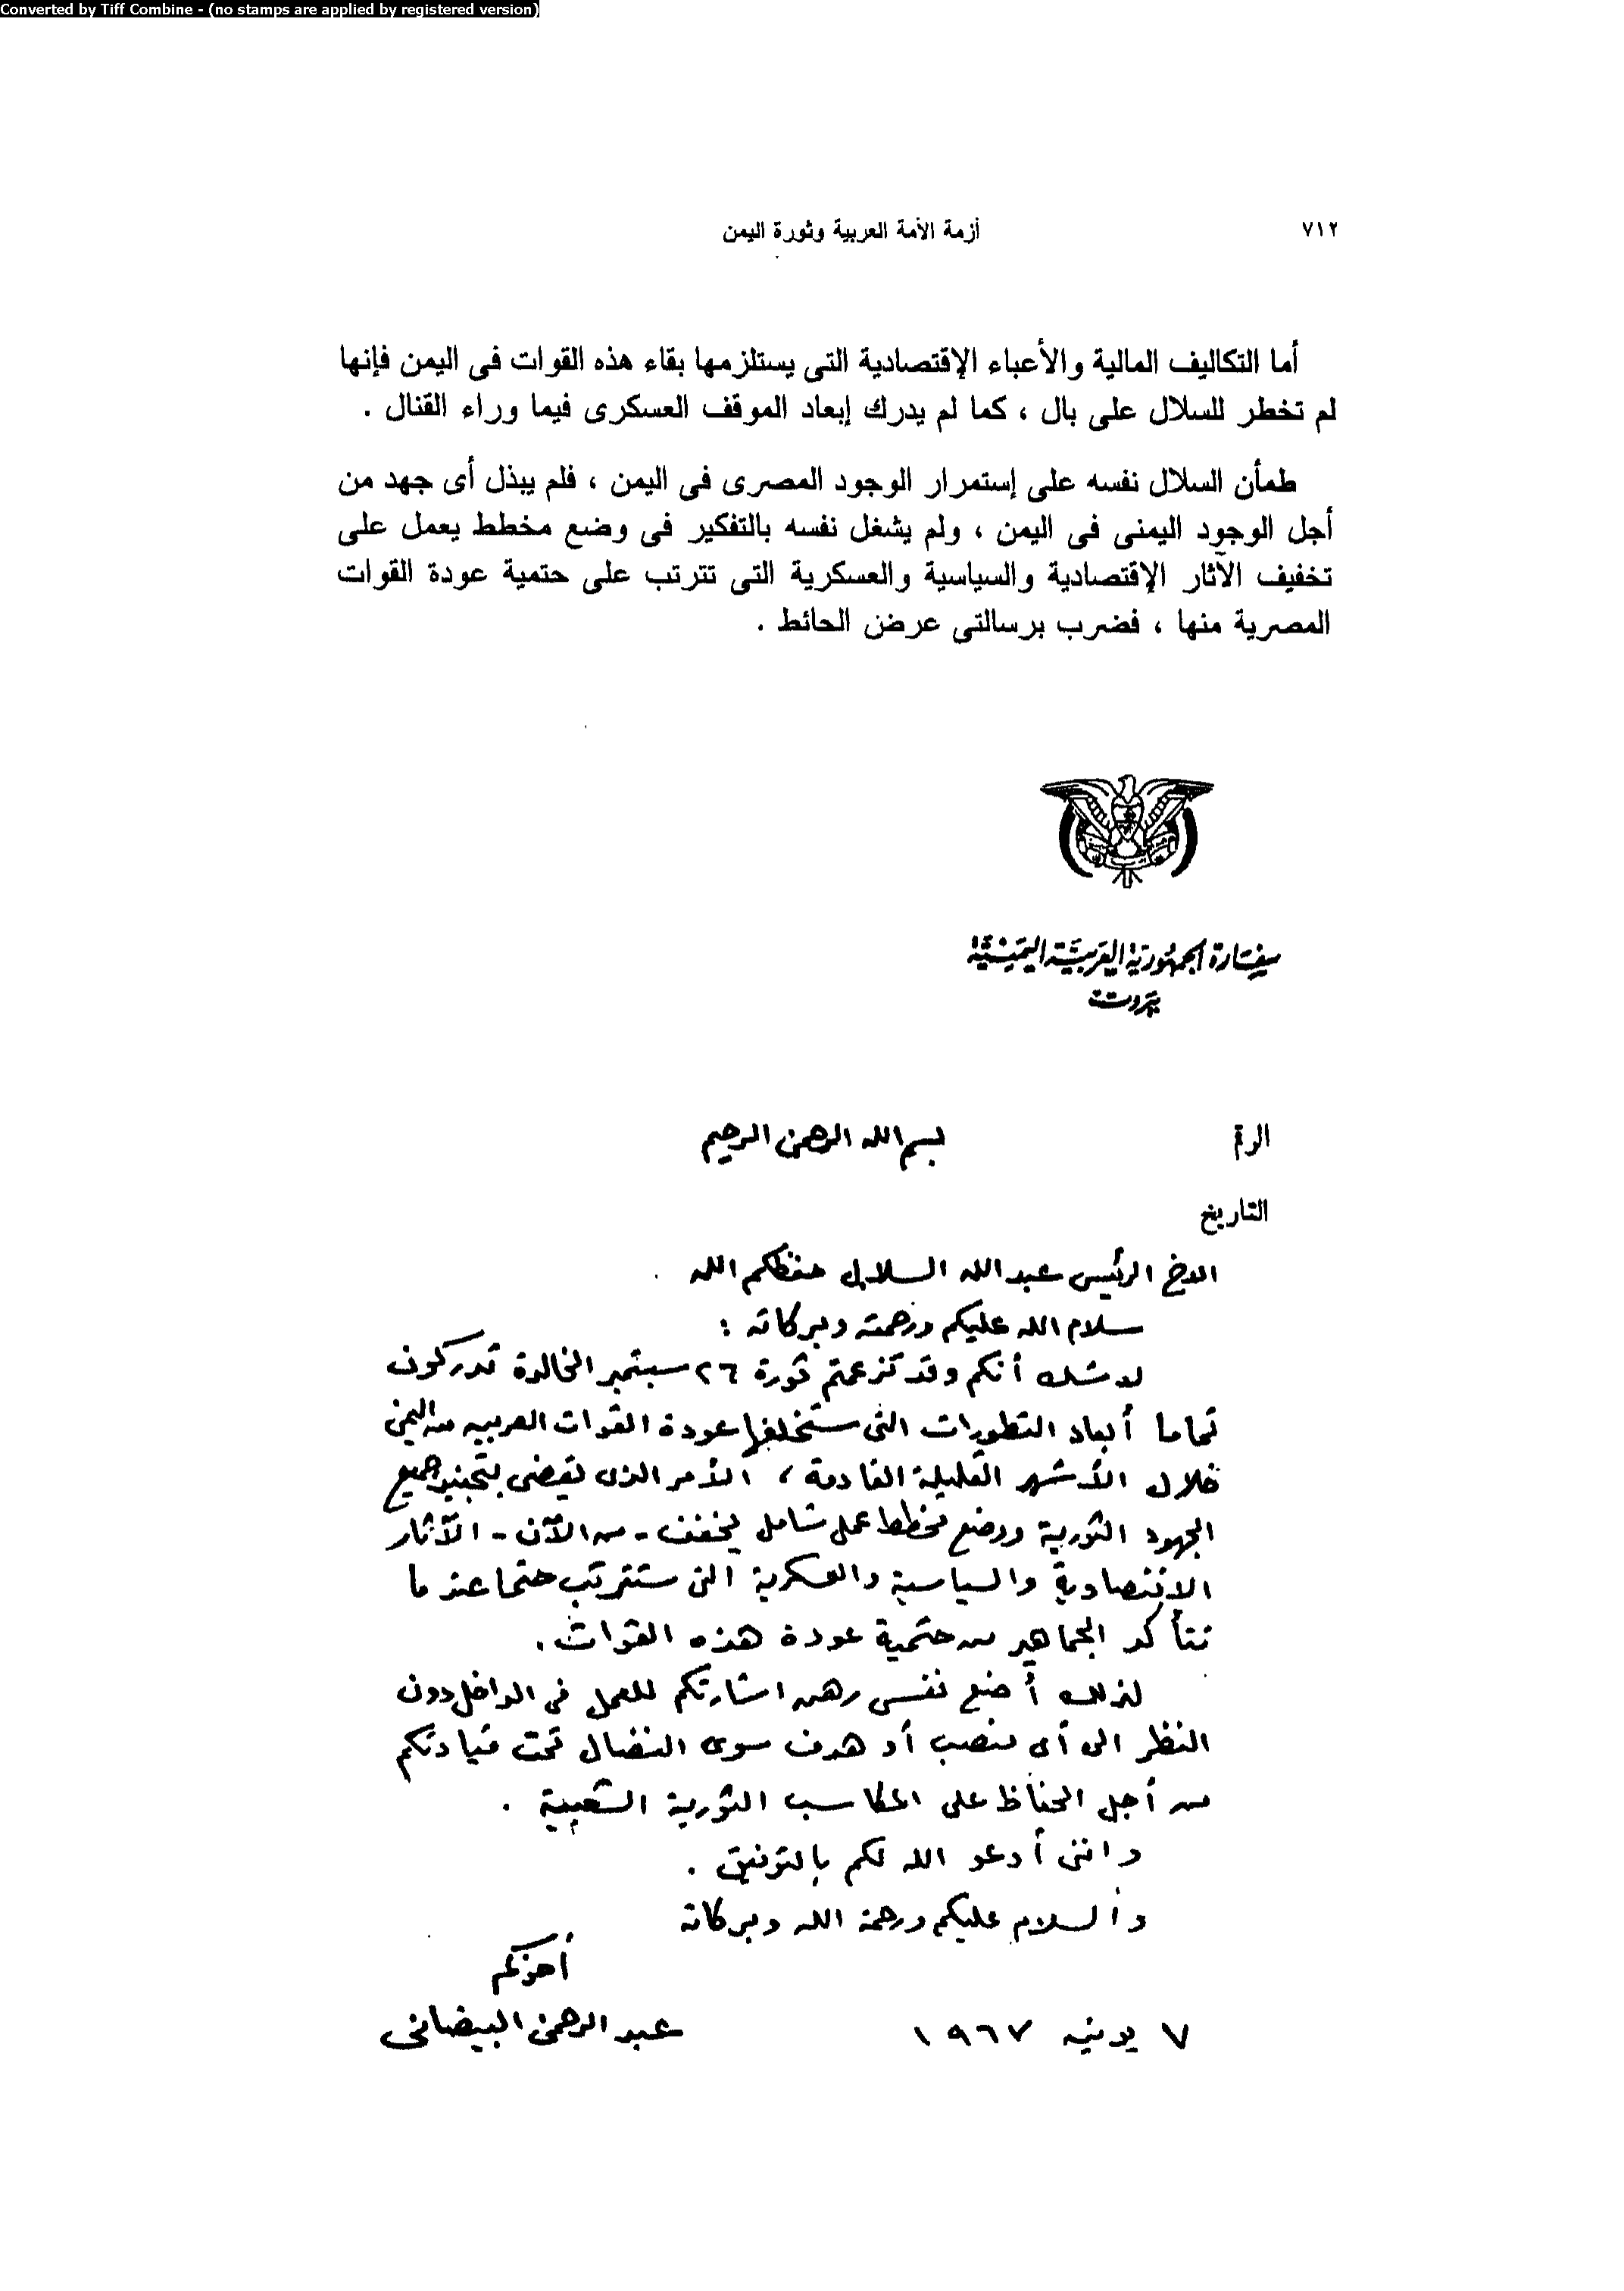 Converted by Tiff Combine - (no stamps are applied by registered version)
٧١٢ أزمة الأمة العربية وثورة اليمن
أما التكاليف المالية والأعباء الإقتصادية التى يستلزمها بقاء هذه القوات فى اليمن فإنها
لم تخطر للسلال على بال ، كما لم يدرك إبعاد الموقف العسكرى فيما وراء القنال .
طمأن السلال نفسه على إستمرار الوجود المصرى فى اليمن ، فلم يبذل أى جهد من
أجل الوجود اليمنى فى اليمن ، ولم يشغل نفسه بالتفكير فى وضع مخطط يعمل على
تخفيف الآثار الإقتصادية والسياسية والعسكرية التى تترتب على حتمية عودة القوات
المصرية منها ، فضرب برسالتى عرض الحائط .
سفارة الجمهورية العربية اليمنية
بيروت
الرقم بسم الله الرحمن الرحيم
التاريخ
الاخ الرئيس عبد الله السلال حفظكم الله
سلام الله عليكم ورحمته وبركاته :
لا شك أنكم وقد تزعمتم ثورة ٢٦ سبتمبر الخالدة تدركون
تماما أبعاد التطورات التى ستخلفها عودة القوات العربيه من اليمن
خلال الأشهر القليلة القادمة ، الأمر الذى يقضى بتجنيد جميع
الجهود الثورية ووضع مخطط عمل شامل يخفف - من الآن - الآثار
الاقتصادية والسياسية والعسكرية التى ستترتب حتما عندما
تتأكد الجماهير من حتمية عودة هذه القوات .
لذلك أضع نفسى رهن اشارتكم للعمل فى الداخل دون
النظر الى أى منصب أو هدف سوى النضال تحت قيادتكم
من أجل الحفاظ على المكاسب الثورية الشعبية .
واننى أدعو الله لكم بالتوفيق .
والسلام عليكم ورحمة الله وبركاته
أخوكم
٧ يونيه ١٩٦٧ عبد الرحمن البيضانى